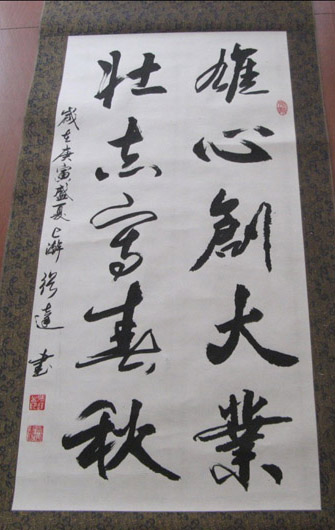 雄心創大業
壯志寫春秋
歲在庚寅盛夏上澣 達書